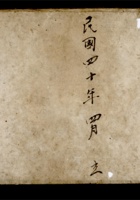 民國四十年 四月 立